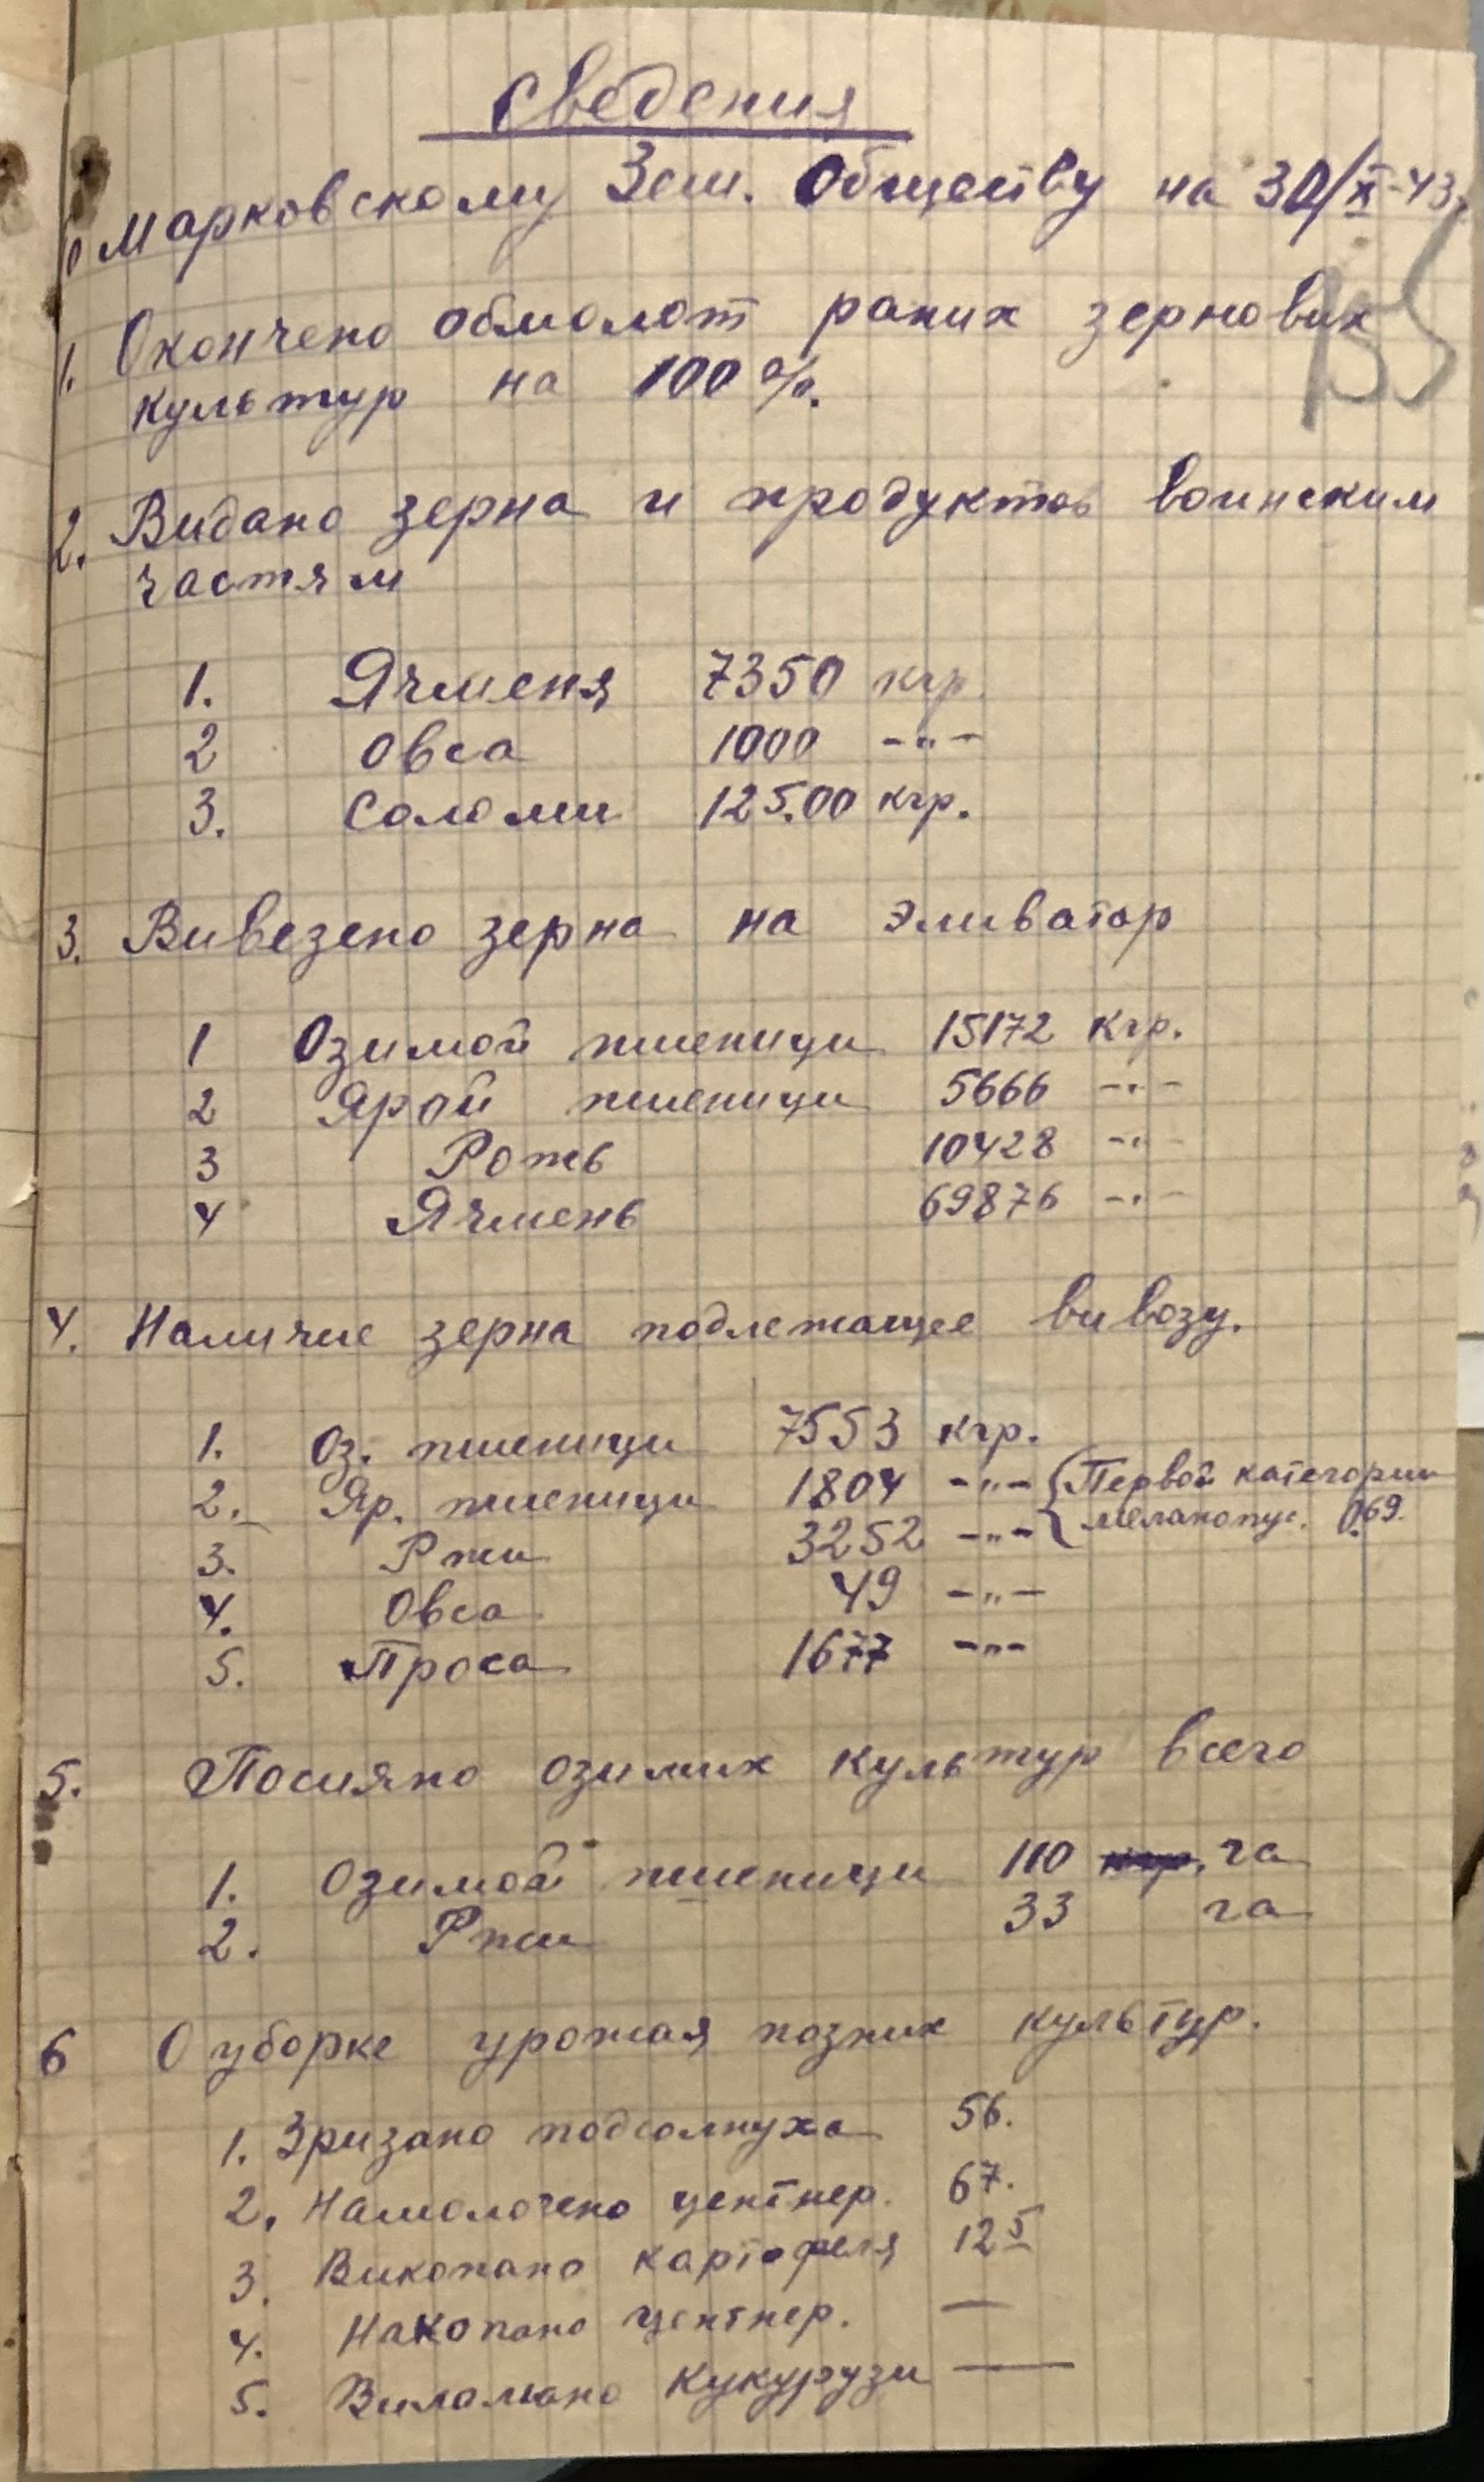 Сведения
по Марковскому Зем. Обществу на 30/X-43.
1. Окончено обмолот раних зерновых
культур на 100%.
2. Видано зерна и продуктов воинским
частям
1. Ячменя 7350 кгр.
2 Овса 1000 -"-
3. Соломи 125.00 кгр.
3. Вивезено зерна на эливатор
1 Озимой пшеници 15172 кгр.
2 Ярой пшеници 5666 -"-
3 Рожь 10428 -"-
4 Ячмень 69876 -"-
4. Наличие зерна подлежащее вивозу.
1. Оз. пшеници 7553 кгр.
2. Яр. пшеници 1804 -"- {Первой категории
3. Ржи 3252 -"- {меланопус. 069.
4. Овса 49 -"-
5. Проса 1677 -"-
5. Посияно озимих культур всего
1. Озимой пшеници 110 га
2. Ржи 33 га
6 О уборке урожая позних культур.
1. Зризано подсолнуха 56.
2. Намолочено центнер. 67.
3. Викопано картофеля 12 5
4. Накопано центнер. —
5. Виламано Кукурузи —